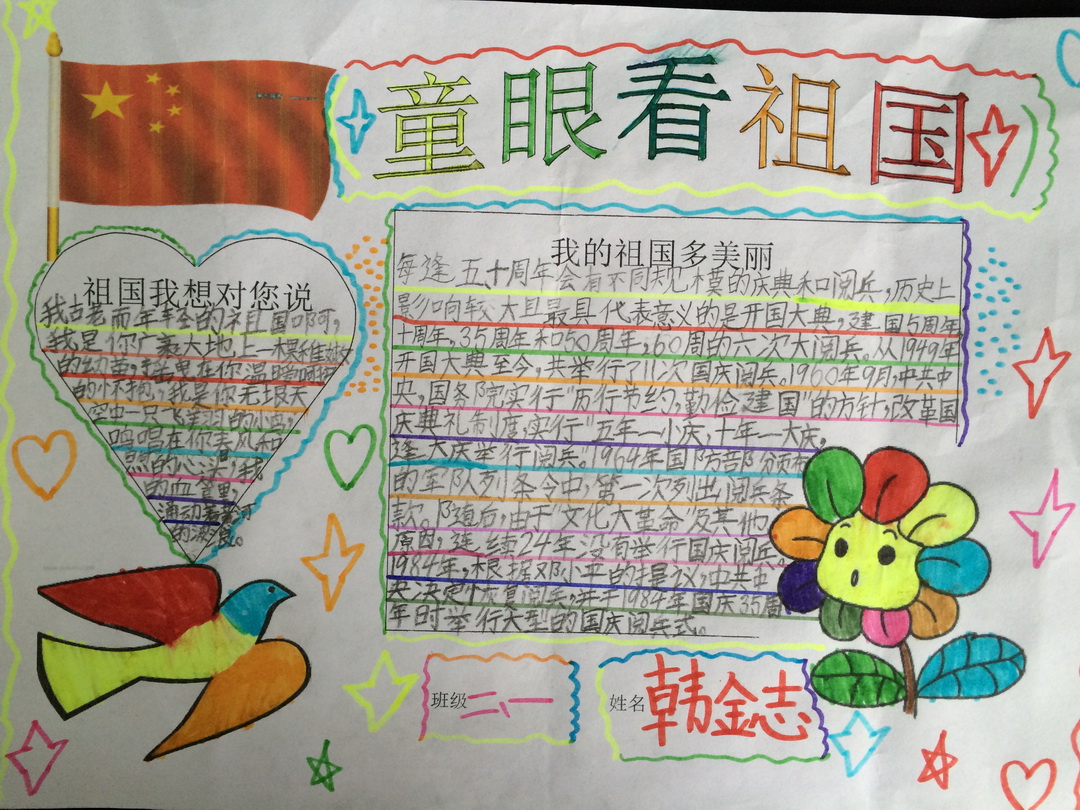 童眼看祖国
祖国我想对您说
我古老而年轻的祖国啊,
我是你广袤大地上一棵稚嫩
的幼苗,
在你温暖
的怀抱,我是你无垠天
空中一只飞
的小鸟,
鸣唱在你春风和
的心
,我
的血管里,
涌动着
河
的
我的祖国多美丽
每逢五十周年会有不同规模的庆典和阅兵,历史上
影响较大且最具代表意义的是开国大典,建国5周年
十周年,35周年和50周年,60周的六次大阅兵。从1949年
开国大典至今,共举行了11次国庆阅兵。1960年9月,中共中
央,国务院实行"厉行节约,勤俭建国"的方针,改革国
庆典礼制度,实行"五年一小庆,十年一大庆,
逢大庆举行阅兵。"1964年国防部颁布
的军队列条令中,第一次列出阅兵条
款。随后,由于"文化大革命"及其他
原因,连续24年没有举行国庆阅兵。
1984年,根据邓小平的提议,中共中
央决定恢复阅兵,并于1984年国庆35周
年时举行大型的国庆阅兵式。
班级二、一
姓名韩金志